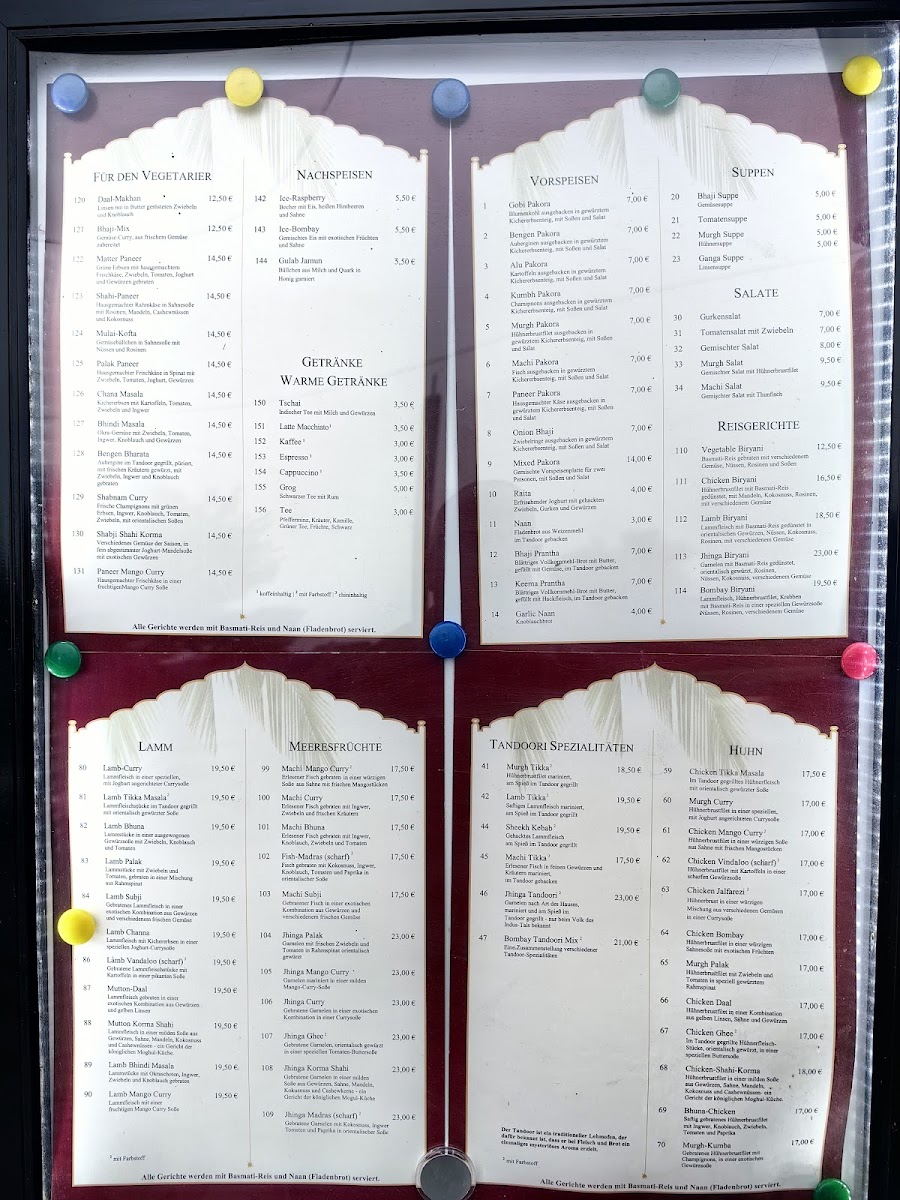 FÜR DEN VEGETARIER
120 Daal-Makhan 12,50 €
Linsen mit in Butter gerösteten Zwiebeln
und Knoblauch
121 Bhaji-Mix 12,50 €
Gemüse-Curry, aus frischem Gemüse
zubereitet
122 Matter Paneer 14,50 €
Grüne Erbsen mit hausgemachtem
Frischkäse, Zwiebeln, Tomaten, Joghurt
und Gewürzen gebraten
123 Shahi-Paneer 14,50 €
Hausgemachter Rahmkäse in Sahnesoße
mit Rosinen, Mandeln, Cashewnüssen
und Kokosnuss
124 Mulai-Kofta 14,50 €
Gemüsebällchen in Sahnesoße mit
Nüssen und Rosinen
125 Palak Paneer 14,50 €
Hausgemachter Frischkäse in Spinat mit
Zwiebeln, Tomaten, Joghurt, Gewürzen
126 Chana Masala 14,50 €
Kichererbsen mit Kartoffeln, Tomaten,
Zwiebeln und Ingwer
127 Bhindi Masala 14,50 €
Okra-Gemüse mit Zwiebeln, Tomaten,
Ingwer, Knoblauch und Gewürzen
128 Bengen Bharata 14,50 €
Aubergine im Tandoor gegrillt, püriert,
mit frischen Kräutern gewürzt, mit
Zwiebeln, Ingwer und Knoblauch
gebraten
129 Shabnam Curry 14,50 €
Frische Champignons mit grünen
Erbsen, Ingwer, Knoblauch, Tomaten,
Zwiebeln, mit orientalischen Soßen
130 Shabji Shahi Korma 14,50 €
Verschiedenes Gemüse der Saison, in
fein abgestimmter Joghurt-Mandelsoße
mit exotischen Gewürzen
131 Paneer Mango Curry 14,50 €
Hausgemachter Frischkäse in einer
fruchtigenMango Curry Soße
NACHSPEISEN
142 Ice-Raspberry 5,50 €
Becher mit Eis, heißen Himbeeren
und Sahne
143 Ice-Bombay 5,50 €
Gemischtes Eis mit exotischen Früchten
und Sahne
144 Gulab Jamun 5,50 €
Bällchen aus Milch und Quark in
Honig garniert
GETRÄNKE
WARME GETRÄNKE
150 Tschai 3,50 €
Indischer Tee mit Milch und Gewürzen
151 Latte Macchiato¹ 3,50 €
152 Kaffee¹ 3,00 €
153 Espresso¹ 3,00 €
154 Cappuccino¹ 3,50 €
155 Grog 5,00 €
Schwarzer Tee mit Rum
156 Tee 3,00 €
Pfefferminz, Kräuter, Kamille,
Grüner Tee, Früchte, Schwarz
¹ koffeinhaltig | ² mit Farbstoff | ³ chininhaltig
Alle Gerichte werden mit Basmati-Reis und Naan (Fladenbrot) serviert.
VORSPEISEN
1 Gobi Pakora 7,00 €
Blumenkohl ausgebacken in gewürztem
Kichererbsenteig, mit Soßen und Salat
2 Bengen Pakora 7,00 €
Auberginen ausgebacken in gewürztem
Kichererbsenteig, mit Soßen und Salat
3 Alu Pakora 7,00 €
Kartoffeln ausgebacken in gewürztem
Kichererbsenteig, mit Soßen und Salat
4 Kumbh Pakora 7,00 €
Champignons ausgebacken in gewürztem
Kichererbsenteig, mit Soßen und Salat
5 Murgh Pakora 7,00 €
Hühnerbrustfilet ausgebacken in
gewürztem Kichererbsenteig, mit Soßen
und Salat
6 Machi Pakora 7,00 €
Fisch ausgebacken in gewürztem
Kichererbsenteig, mit Soßen und Salat
7 Paneer Pakora 7,00 €
Hausgemachter Käse ausgebacken in
gewürztem Kichererbsenteig, mit Soßen
und Salat
8 Onion Bhaji 7,00 €
Zwiebelringe ausgebacken in gewürztem
Kichererbsenteig, mit Soßen und Salat
9 Mixed Pakora 14,00 €
Gemischte Vorspeisenplatte für zwei
Personen, mit Soßen und Salat
10 Raita 4,00 €
Erfrischender Joghurt mit gehackten
Zwiebeln, Gurken und Gewürzen
11 Naan 3,00 €
Fladenbrot aus Weizenmehl
im Tandoor gebacken
12 Bhaji Prantha 7,00 €
Blättriges Vollkornmehl-Brot mit Butter,
gefüllt mit Gemüse, im Tandoor gebacken
13 Keema Prantha 7,00 €
Blättriges Vollkornmehl-Brot mit Butter,
gefüllt mit Hackfleisch, im Tandoor gebacken
14 Garlic Naan 4,00 €
Knoblauchbrot
SUPPEN
20 Bhaji Suppe 5,00 €
Gemüsesuppe
21 Tomatensuppe 5,00 €
22 Murgh Suppe 5,00 €
Hühnersuppe
23 Ganga Suppe 5,00 €
Linsensuppe
SALATE
30 Gurkensalat 7,00 €
31 Tomatensalat mit Zwiebeln 7,00 €
32 Gemischter Salat 8,00 €
33 Murgh Salat 9,50 €
Gemischter Salat mit Hühnerbrustfilet
34 Machi Salat 9,50 €
Gemischter Salat mit Thunfisch
REISGERICHTE
110 Vegetable Biryani 12,50 €
Basmati-Reis gebraten mit verschiedenem
Gemüse, Nüssen, Rosinen und Soßen
111 Chicken Biryani 16,50 €
Hühnerbrustfilet mit Basmati-Reis
gedünstet, mit Mandeln, Kokosnuss, Rosinen,
mit verschiedenem Gemüse
112 Lamb Biryani 18,50 €
Lammfleisch mit Basmati-Reis gedünstet in
orientalischen Gewürzen, Nüssen, Kokosnuss,
Rosinen, mit verschiedenem Gemüse
113 Jhinga Biryani 23,00 €
Garnelen mit Basmati Reis gedünstet,
orientalisch gewürzt, Rosinen,
Nüssen, Kokosnuss, verschiedenem Gemüse
114 Bombay Biryani 19,50 €
Lammfleisch, Hühnerbrustfilet, Krabben
mit Basmati-Reis in einer speziellen Gewürzsoße
Nüssen, Rosinen, verschiedenem Gemüse
LAMM
80 Lamb-Curry 19,50 €
Lammfleisch in einer speziellen,
mit Joghurt angerichteter Currysoße
81 Lamb Tikka Masala² 19,50 €
Lammfleischstücke im Tandoor gegrillt
mit orientalisch gewürzter Soße
82 Lamb Bhuna 19,50 €
Lammstücke in einer ausgewogenen
Gewürzsoße mit Zwiebeln, Knoblauch
und Tomaten
83 Lamb Palak 19,50 €
Lammstücke mit Zwiebeln und
Tomaten, gebraten in einer Mischung
aus Rahmspinat
84 Lamb Subji 19,50 €
Gebratenes Lammfleisch in einer
exotischen Kombination aus Gewürzen
und verschiedenem frischem Gemüse
Lamb Channa 19,50 €
Lammfleisch mit Kichererbsen in einer
speziellen Joghurt-Currysoße
86 Lamb Vandaloo (scharf)² 19,50 €
Gebratene Lammfleischstücke mit
Kartoffeln in einer pikanten Soße
87 Mutton-Daal 19,50 €
Lammfleisch gebraten in einer
exotischen Kombination aus Gewürzen
und gelben Linsen
88 Mutton Korma Shahi 19,50 €
Lammfleisch in einer milden Soße aus
Gewürzen, Sahne, Mandeln, Kokosnuss
und Cashewnüssen - ein Gericht der
königlichen Moghul-Küche
89 Lamb Bhindi Masala 19,50 €
Lammstücke mit Okraschoten, Ingwer,
Zwiebeln und Knoblauch gebraten
90 Lamb Mango Curry 19,50 €
Lammfleisch mit einer
fruchtigen Mango Curry Soße
² mit Farbstoff
MEERESFRÜCHTE
99 Machi-Mango Curry² 17,50 €
Erlesener Fisch gebraten in einer würzigen
Soße aus Sahne mit frischen Mangostücken
100 Machi Curry 17,50 €
Erlesener Fisch gebraten mit Ingwer,
Zwiebeln und frischen Kräutern
101 Machi Bhuna 17,50 €
Erlesener Fisch gebraten mit Ingwer,
Zwiebeln, Knoblauch und Tomaten
102 Fish-Madras (scharf)² 17,50 €
Fisch gebraten mit Kokosnuss, Ingwer,
Knoblauch, Tomaten und Paprika in
orientalischer Soße
103 Machi Subji 17,50 €
Gebratener Fisch in einer exotischen
Kombination aus Gewürzen und
verschiedenem frischen Gemüse
104 Jhinga Palak 23,00 €
Garnelen mit frischen Zwiebeln und
Tomaten in Rahmspinat orientalisch
gewürzt
105 Jhinga Mango Curry² 23,00 €
Garnelen mariniert in einer milden
Mango-Curry-Soße
106 Jhinga Curry 23,00 €
Gebratene Garnelen in einer exotischen
Kombination in einer Currysoße
107 Jhinga Ghee² 23,00 €
Gebratene Garnelen, orientalisch gewürzt
in einer speziellen Tomaten-Buttersoße
108 Jhinga Korma Shahi 23,00 €
Gebratene Garnelen in einer milden
Soße aus Gewürzen, Sahne, Mandeln,
Kokosnuss und Cashewkerne - ein
Gericht der königlichen Moghul-Küche
109 Jhinga Madras (scharf)² 23,00 €
Gebratene Garnelen mit Kokosnuss, Ingwer
Tomaten und Paprika in orientalischer Soße
Alle Gerichte werden mit Basmati-Reis und Naan (Fladenbrot) serviert.
TANDOORI SPEZIALITÄTEN
41 Murgh Tikka² 18,50 €
Hühnerbrustfilet mariniert,
am Spieß im Tandoor gegrillt
42 Lamb Tikka² 19,50 €
Saftiges Lammfleisch mariniert,
am Spieß im Tandoor gegrillt
44 Sheekh Kebab² 19,50 €
Gehacktes Lammfleisch
am Spieß im Tandoor gegrillt
45 Machi Tikka² 17,50 €
Erlesener Fisch in feinen Gewürzen und
Kräutern mariniert,
im Tandoor gebacken
46 Jhinga Tandoori² 23,00 €
Garnelen nach Art des Hauses,
mariniert und am Spieß im
Tandoor gegrillt - nur beim Volk des
Indus-Tals bekannt
47 Bombay Tandoori Mix² 21,00 €
Eine Zusammenstellung verschiedener
Tandoor-Spezialitäten
Der Tandoor ist ein traditioneller Lehmofen, der
dafür bekannt ist, dass er bei Fleisch und Brot ein
einmaliges mysteriöses Aroma erzielt.
² mit Farbstoff
HUHN
59 Chicken Tikka Masala 17,50 €
Im Tandoor gegrilltes Hühnerfleisch
mit orientalisch gewürzter Soße
60 Murgh Curry 17,00 €
Hühnerbrustfilet in einer speziellen,
mit Joghurt angerichteter Currysoße
61 Chicken Mango Curry² 17,00 €
Hühnerbrustfilet in einer würzigen Soße
aus Sahne mit frischen Mangostücken
62 Chicken Vindaloo (scharf)² 17,00 €
Hühnerbrustfilet mit Kartoffeln in einer
scharfen Gewürzsoße
63 Chicken Jalfarezi² 17,00 €
Hühnerbrust in einer würzigen
Mischung aus verschiedenen Gemüsen
in einer Currysoße
64 Chicken Bombay 17,00 €
Hühnerbrustfilet in einer würzigen
Sahnesoße mit exotischen Früchten
65 Murgh Palak 17,00 €
Hühnerbrustfilet mit Zwiebeln und
Tomaten in speziell gewürztem
Rahmspinat
66 Chicken Daal 17,00 €
Hühnerbrustfilet in einer Kombination
aus gelben Linsen, Sahne und Gewürzen
67 Chicken Ghee² 17,00 €
Im Tandoor gegrillte Hühnerfleisch-
Stücke, orientalisch gewürzt, in einer
speziellen Buttersoße
68 Chicken-Shahi-Korma 18,00 €
Hühnerbrustfilet in einer milden Soße
aus Gewürzen, Sahne, Mandeln,
Kokosnuss und Cashewnüssen- ein
Gericht der königlichen Moghul-Küche.
69 Bhuna-Chicken 17,00 €
Saftig gebratenes Hühnerbrustfilet
mit Ingwer, Knoblauch, Zwiebeln,
Tomaten und Paprika
70 Murgh-Kumba 17,00 €
Gebratenes Hühnerbrustfilet mit
Champignons, in einer exotischen
Gewürzsoße
Alle Gerichte werden mit Basmati-Reis und Naan (Fladenbrot) serviert.